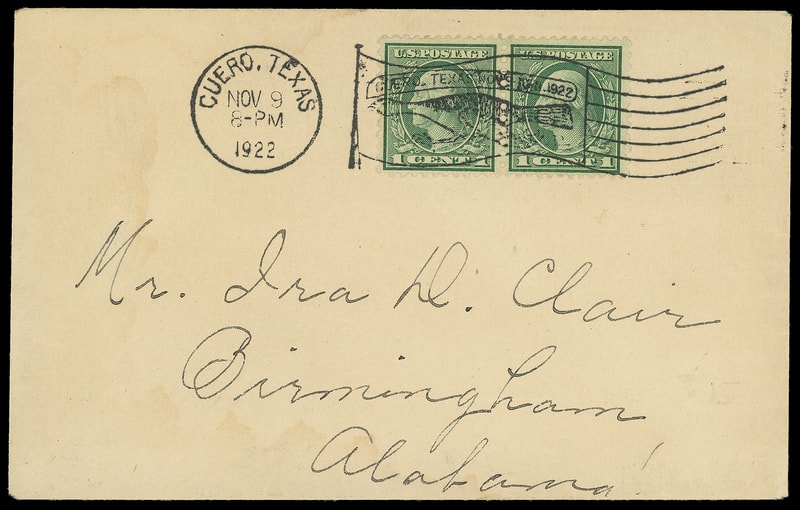 CUERO, TEXAS
NOV 9
8-PM
1922
U.S. POSTAGE U.S. POSTAGE
CUERO, TEXAS 1922
1 CENT 1 1 CENT 1
Mr. Ira D. Clair
Birmingham
Alabama